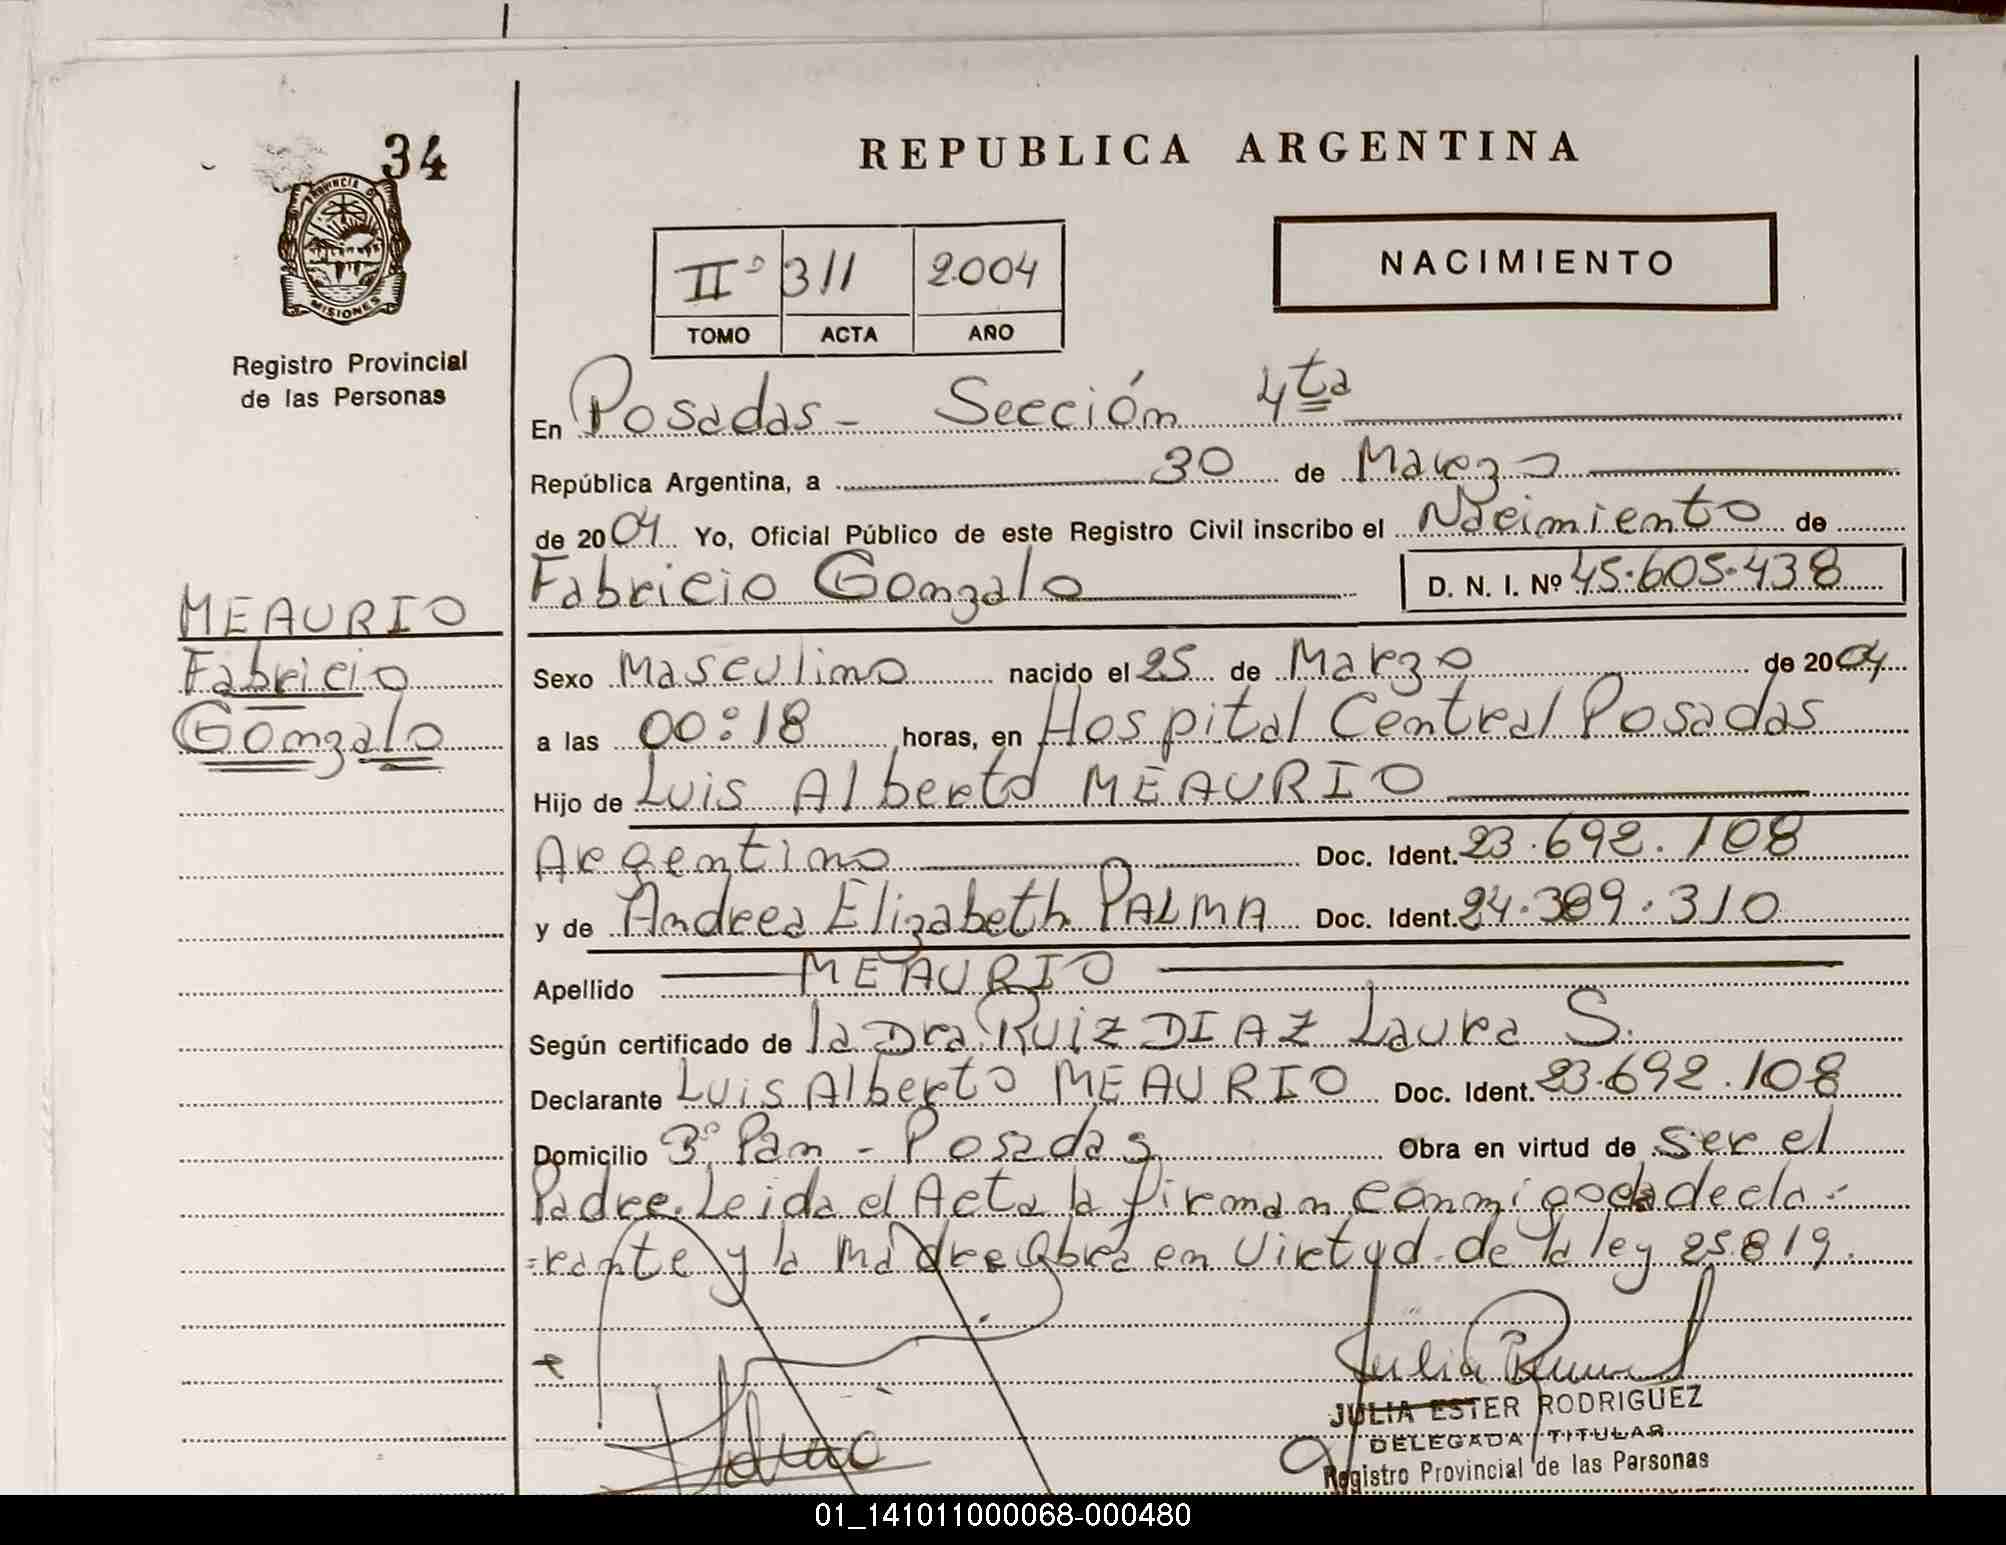 34
PROVINCIA DE
MISIONES
Registro Provincial
de las Personas
REPUBLICA ARGENTINA
IIº 311 2004
TOMO ACTA AÑO
NACIMIENTO
En Posadas - Sección 4ta
República Argentina, a 30 de Marzo
de 2004 Yo, Oficial Público de este Registro Civil inscribo el Nacimiento de
Fabricio Gonzalo D. N. I. Nº 45.605.438
MEAURIO
Fabricio
Gonzalo
Sexo Masculino nacido el 25 de Marzo de 2004
a las 00:18 horas, en Hospital Central Posadas
Hijo de Luis Alberto MEAURIO
Argentino Doc. Ident. 23.692.108
y de Andrea Elizabeth PALMA Doc. Ident. 24.389.310
Apellido MEAURIO
Según certificado de la Dra. RUIZ DIAZ Laura S.
Declarante Luis Alberto MEAURIO Doc. Ident. 23.692.108
Domicilio 3º Pam - Posadas Obra en virtud de ser el
Padre. Leida el Acta la firman conmigo el decla-
-rante y la madre Obra en virtud de la ley 25.819.
JULIA ESTER RODRIGUEZ
DELEGADA TITULAR
Registro Provincial de las Personas
01_141011000068-000480